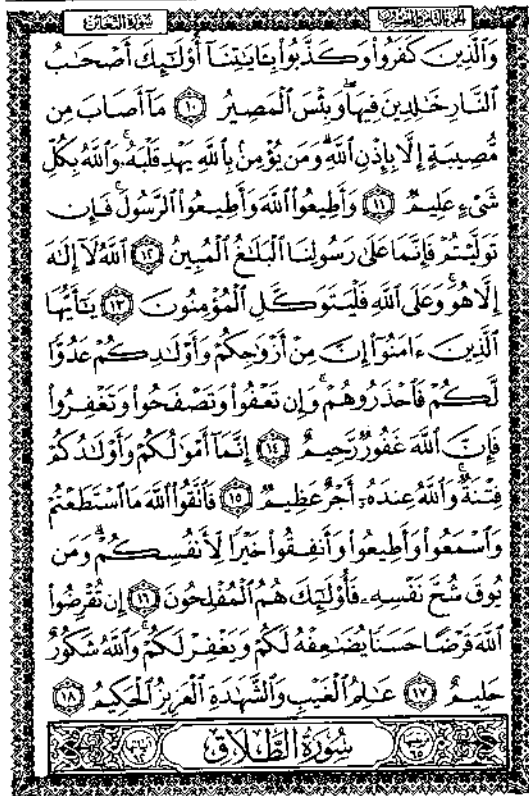 سُورَةُ التَّغَابُنِ الجُزْءُ الثَّامِنُ وَالعِشْرُونَ
وَٱلَّذِينَ كَفَرُواْ وَكَذَّبُواْ بِـَٔايَـٰتِنَآ أُوْلَـٰٓئِكَ أَصْحَـٰبُ
ٱلنَّارِ خَـٰلِدِينَ فِيهَا ۖ وَبِئْسَ ٱلْمَصِيرُ ١٠ مَآ أَصَابَ مِن
مُّصِيبَةٍ إِلَّا بِإِذْنِ ٱللَّهِ ۗ وَمَن يُؤْمِنۢ بِٱللَّهِ يَهْدِ قَلْبَهُۥ ۚ وَٱللَّهُ بِكُلِّ
شَىْءٍ عَلِيمٌ ١١ وَأَطِيعُواْ ٱللَّهَ وَأَطِيعُواْ ٱلرَّسُولَ ۚ فَإِن
تَوَلَّيْتُمْ فَإِنَّمَا عَلَىٰ رَسُولِنَا ٱلْبَلَـٰغُ ٱلْمُبِينُ ١٢ ٱللَّهُ لَآ إِلَـٰهَ
إِلَّا هُوَ ۚ وَعَلَى ٱللَّهِ فَلْيَتَوَكَّلِ ٱلْمُؤْمِنُونَ ١٣ يَـٰٓأَيُّهَا
ٱلَّذِينَ ءَامَنُوٓاْ إِنَّ مِنْ أَزْوَٰجِكُمْ وَأَوْلَـٰدِكُمْ عَدُوًّا
لَّكُمْ فَٱحْذَرُوهُمْ ۚ وَإِن تَعْفُواْ وَتَصْفَحُواْ وَتَغْفِرُواْ
فَإِنَّ ٱللَّهَ غَفُورٌ رَّحِيمٌ ١٤ إِنَّمَآ أَمْوَٰلُكُمْ وَأَوْلَـٰدُكُمْ
فِتْنَةٌ ۚ وَٱللَّهُ عِندَهُۥٓ أَجْرٌ عَظِيمٌ ١٥ فَٱتَّقُواْ ٱللَّهَ مَا ٱسْتَطَعْتُمْ
وَٱسْمَعُواْ وَأَطِيعُواْ وَأَنفِقُواْ خَيْرًا لِّأَنفُسِكُمْ ۗ وَمَن
يُوقَ شُحَّ نَفْسِهِۦ فَأُوْلَـٰٓئِكَ هُمُ ٱلْمُفْلِحُونَ ١٦ إِن تُقْرِضُواْ
ٱللَّهَ قَرْضًا حَسَنًا يُضَـٰعِفْهُ لَكُمْ وَيَغْفِرْ لَكُمْ ۚ وَٱللَّهُ شَكُورٌ
حَلِيمٌ ١٧ عَـٰلِمُ ٱلْغَيْبِ وَٱلشَّهَـٰدَةِ ٱلْعَزِيزُ ٱلْحَكِيمُ ١٨
سُورَةُ الطَّلَاقِ